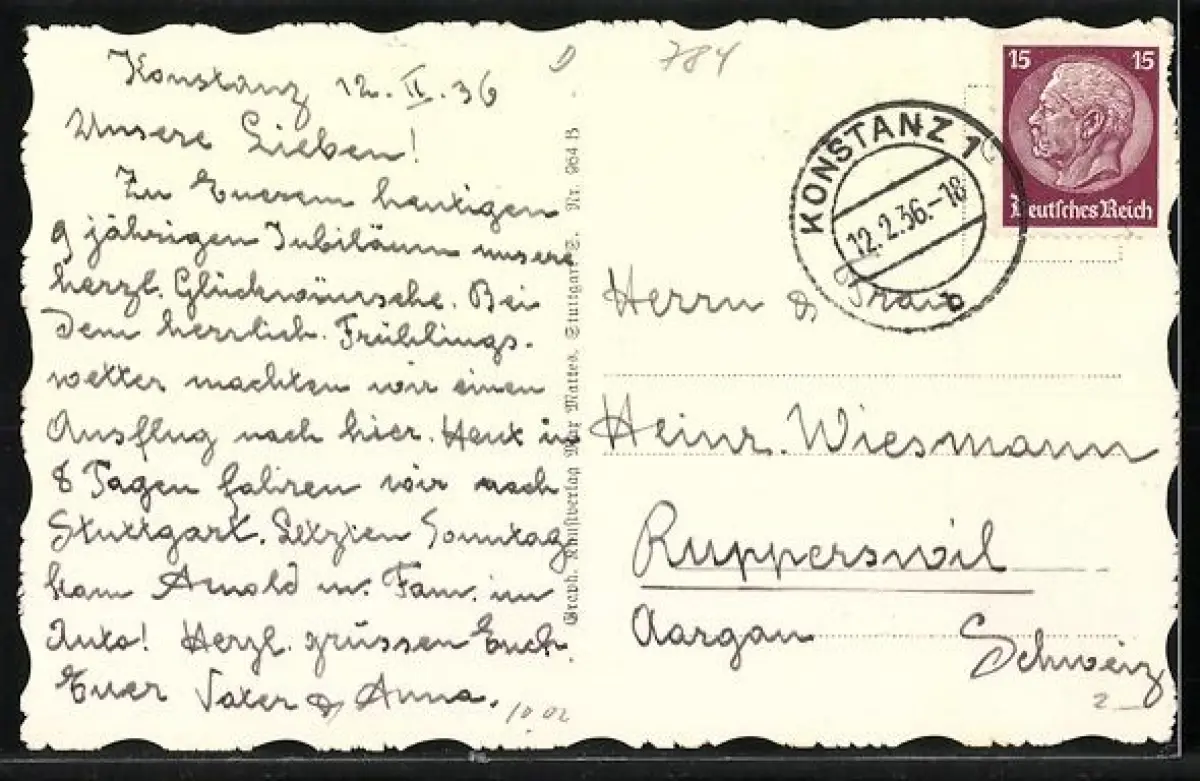 Konstanz 12. II. 36
Unsere Lieben!
Zu Euerem heutigen
9 jährigen Jubiläum unsere
herzl. Glückwünsche. Bei
dem herrlich. Frühlings-
wetter machten wir einen
Ausflug nach hier. Heut in
8 Tagen fahren wir nach
Stuttgart. Letzten Sonntag
kam Arnold m. Fam. im
Auto! Herzl. grüssen Euch
Euer Vater & Anna.
10.02
D
784
Graph. Kunstverlag Max Mattes, Stuttgart-S. Nr. 964 B.
KONSTANZ 1
12.2.36.-18
b
15 15
Deutsches Reich
Herrn & Frau
Heinr. Wiesmann
Rupperswil
Aargau
Schweiz
2